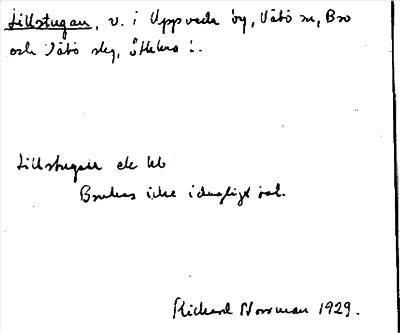 Lillstugan, v. i Uppveda by, Vätö sn, Bro
och Vätö skg, Sthlms l.
Lillstugan ek hb
Brukas icke i dagligt tal.
Richard Norrman 1929.